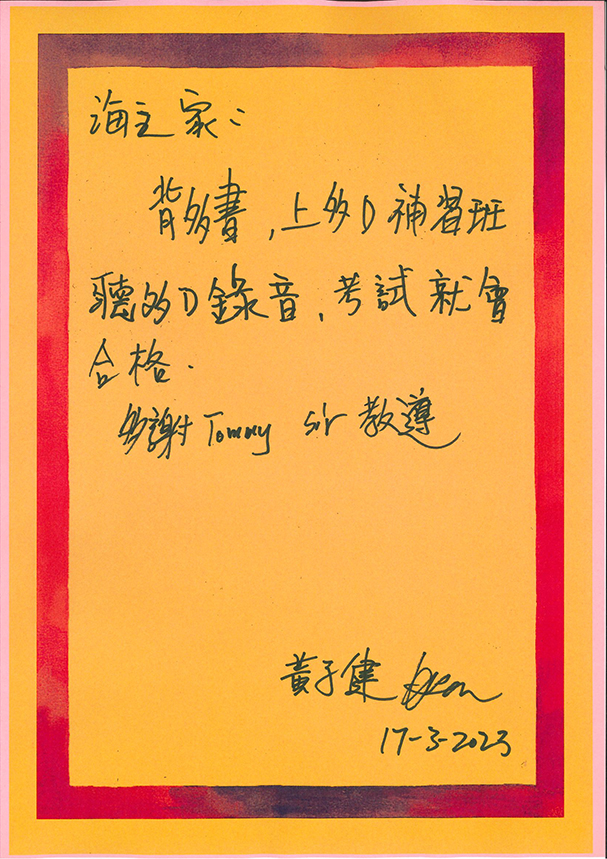 海主家:
背多書,上多D補習班
聽多D錄音,考試就會
合格.
多謝 Tommy sir 教導
黃子健
17-3-2023